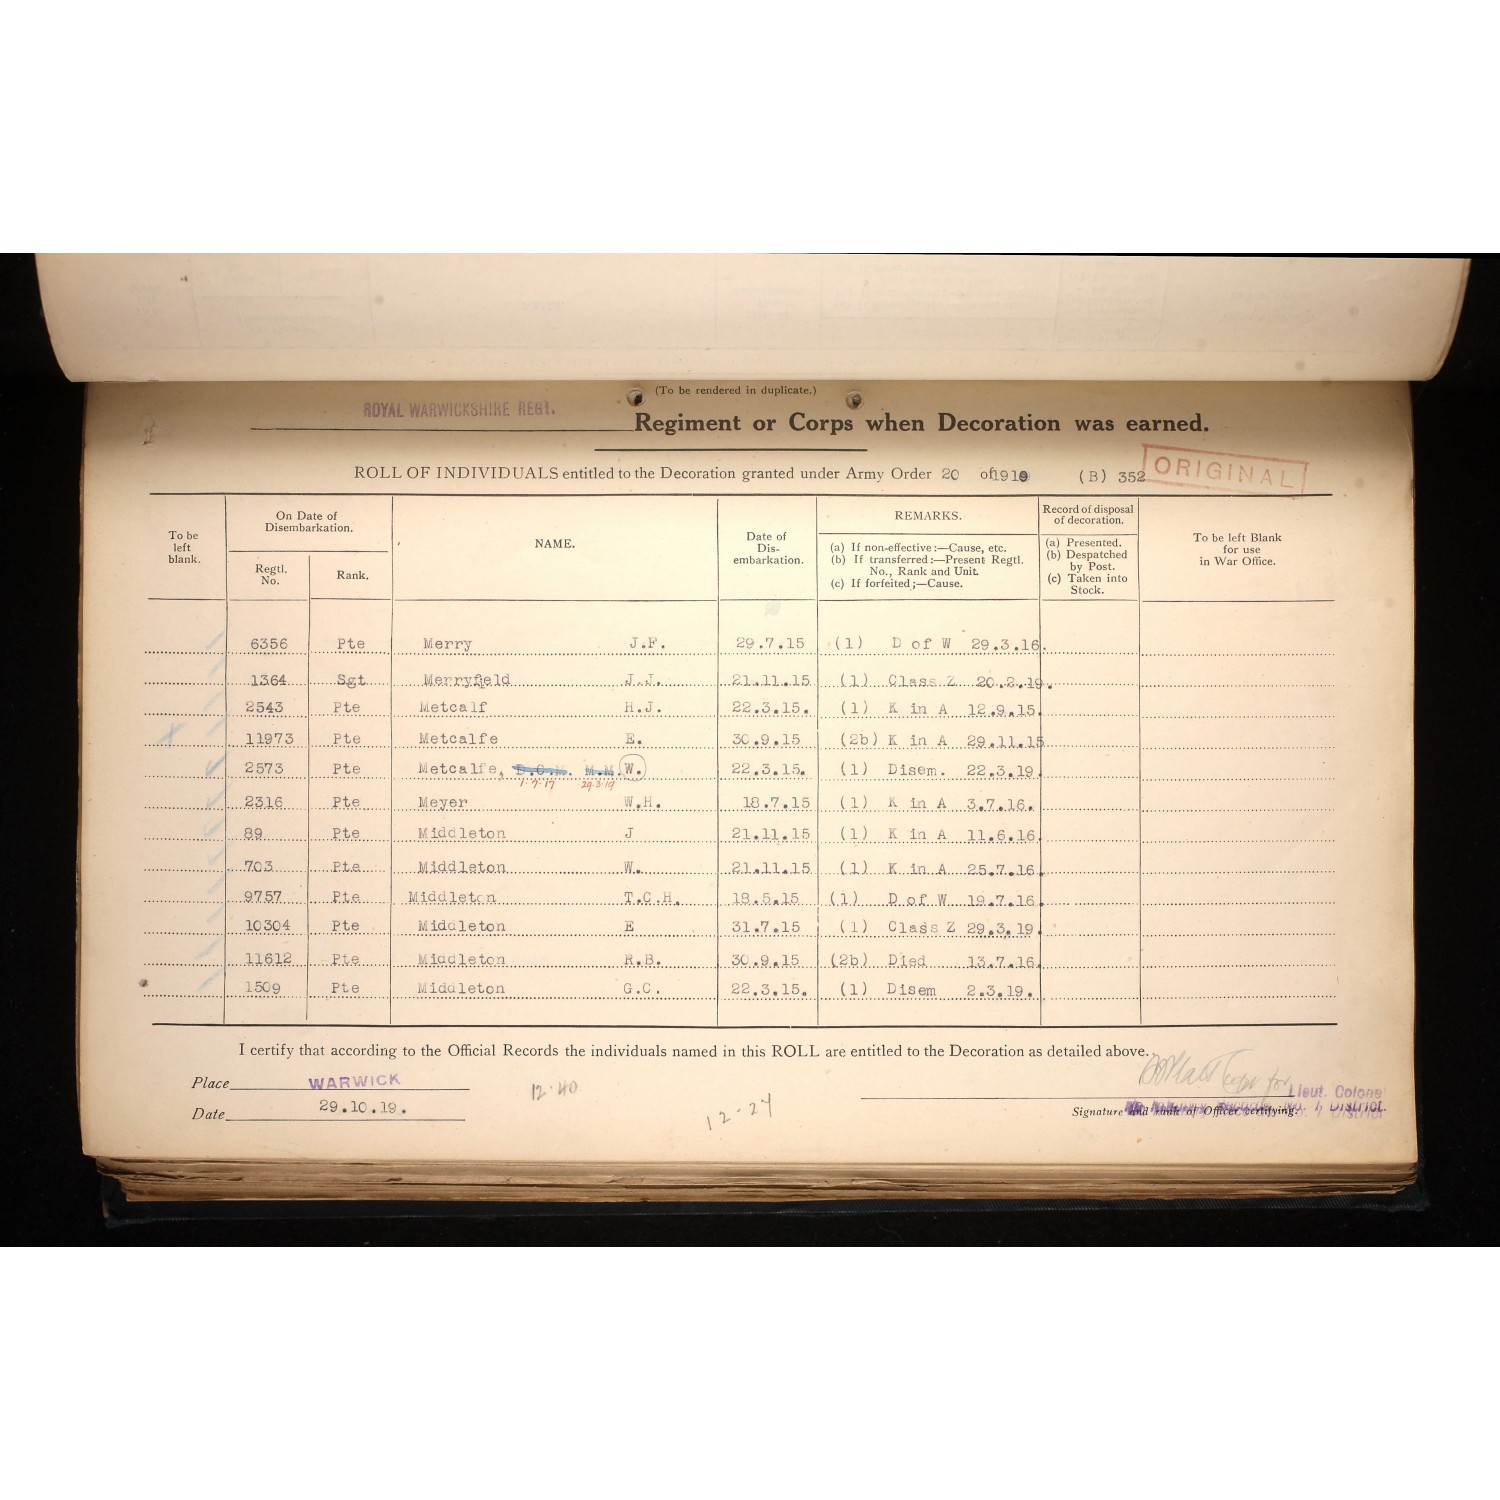 (To be rendered in duplicate.)
ROYAL WARWICKSHIRE REGT. Regiment or Corps when Decoration was earned.
ROLL OF INDIVIDUALS entitled to the Decoration granted under Army Order 20 of 1919 (B) 352
ORIGINAL
To be left blank.
On Date of Disembarkation.
Regtl. No.
Rank.
NAME.
Date of Dis-embarkation.
REMARKS.
(a) If non-effective:—Cause, etc.
(b) If transferred:—Present Regtl. No., Rank and Unit.
(c) If forfeited;—Cause.
Record of disposal of decoration.
(a) Presented.
(b) Despatched by Post.
(c) Taken into Stock.
To be left Blank for use in War Office.
6356 Pte Merry J.F. 29.7.15 (1) D of W 29.3.16.
1364 Sgt Merryfield J.J. 21.11.15 (1) Class Z 20.2.19.
2543 Pte Metcalf H.J. 22.3.15. (1) K in A 12.9.15.
11973 Pte Metcalfe E. 30.9.15 (2b) K in A 29.11.15
2573 Pte Metcalfe, D.C.M. M.M. W. 22.3.15. (1) Disem. 22.3.19.
1·7·17 29·3·19
2316 Pte Meyer W.H. 18.7.15 (1) K in A 3.7.16.
89 Pte Middleton J 21.11.15 (1) K in A 11.6.16.
703 Pte Middleton W. 21.11.15 (1) K in A 25.7.16.
9757 Pte Middleton T.C.H. 18.5.15 (1) D of W 19.7.16.
10304 Pte Middleton E 31.7.15 (1) Class Z 29.3.19.
11612 Pte Middleton R.B. 30.9.15 (2b) Died 13.7.16.
1509 Pte Middleton G.C. 22.3.15. (1) Disem 2.3.19.
I certify that according to the Official Records the individuals named in this ROLL are entitled to the Decoration as detailed above.
Place WARWICK
Date 29.10.19.
12·40
12-24
for Lieut. Colonel
Signature and rank of Officer certifying. District.